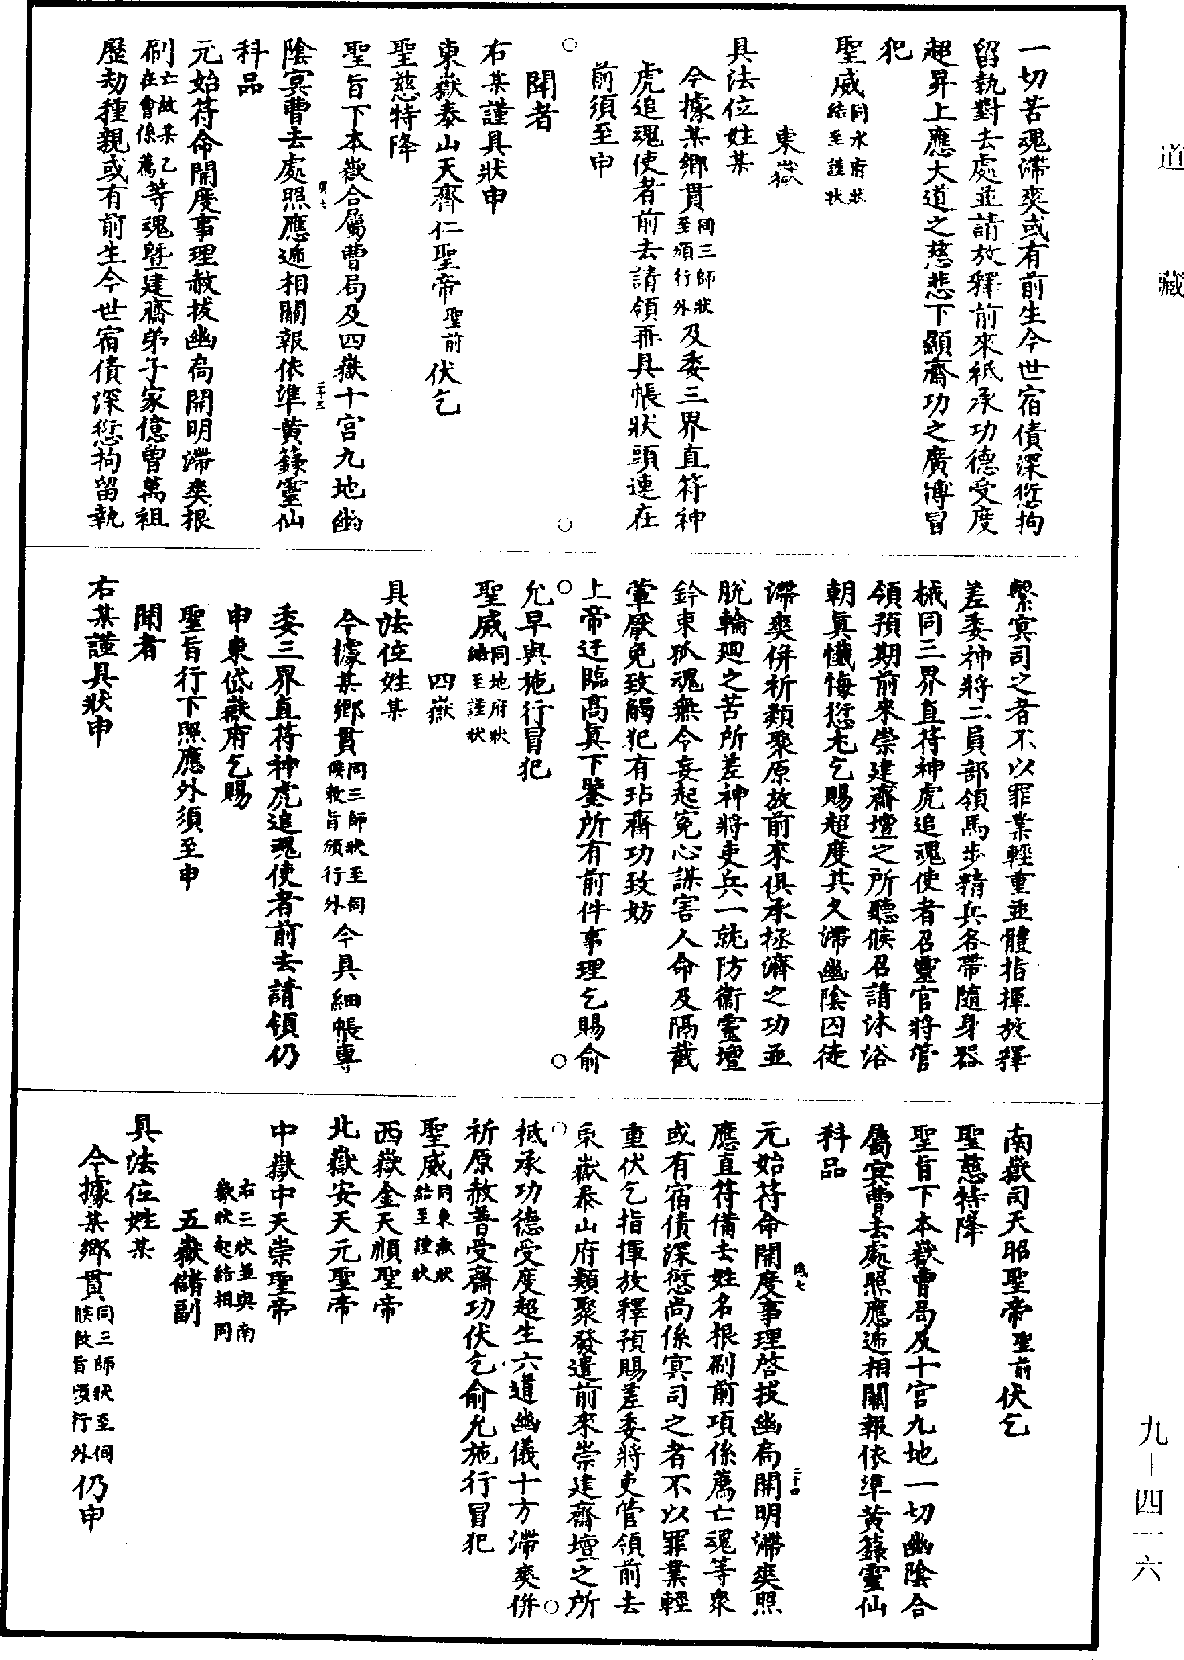 道藏
一切苦魂滯爽或有前生今世宿債深愆拘
留執對去處並請放釋前來祗承功德受度
超昇上應大道之慈悲下顯齋功之廣博冒
犯
聖威同水府狀結至謹狀
東嶽
具法位姓某
今據某鄉貫同三師狀至須行外及委三界直符神
虎追魂使者前去請領再具帳狀頭連在
前須至申
聞者
右某謹具狀申
東嶽泰山天齊仁聖帝聖前伏乞
聖慈特降
聖旨下本嶽合屬曹局及四嶽十宮九地幽
陰冥曹去處照應遞相關報依準黃籙靈仙
科品
元始符命開度事理赦拔幽扃開明滯爽根
刷亡故某乙在會係薦等魂暨建齋弟子家億曾萬祖
歷劫種親或有前生今世宿債深愆拘留執
繫冥司之者不以罪業輕重並體指揮放釋
差委神將二員部領馬步精兵各帶隨身器
械同三界直符神虎追魂使者召靈官將管
領預期前來崇建齋壇之所聽候召請沐浴
朝真懺悔愆尤乞賜超度其久滯幽陰囚徒
滯爽併祈類聚原放前來俱承拯濟之功並
脫輪廻之苦所差神將吏兵一就防衛靈壇
鈐束孤魂無令妄起冤心謀害人命及隔截
葷厭免致觸犯有玷齋功致妨
上帝迂臨高真下鑒所有前件事理乞賜俞
允早與施行冒犯
聖威同地府狀結至謹狀
四嶽
具法位姓某
今據某鄉貫同三師狀至伺候敕旨須行外今具細帳專
委三界直符神虎追魂使者前去請領仍
申東岱嶽府乞賜
聖旨行下照應外須至申
聞者
右某謹具狀申
南嶽司天昭聖帝聖前伏乞
聖慈特降
聖旨下本嶽曹局及十宮九地一切幽陰合
屬冥曹去處照應遞相關報依準黃籙靈仙
科品
元始符命開度事理啓拔幽扃開明滯爽照
應直符備去姓名根刷前項係薦亡魂等衆
或有宿債深愆尚係冥司之者不以罪業輕
重伏乞指揮放釋預賜差委將吏管領前去
東嶽泰山府類聚發遣前來崇建齋壇之所
祗承功德受度超生六道幽儀十方滯爽併
祈原赦普受齋功伏乞俞允施行冒犯
聖威同東嶽狀結至謹狀
西嶽金天順聖帝
北嶽安天元聖帝
中嶽中天崇聖帝
右三狀並與南嶽狀起結相同
五嶽儲副
具法位姓某
今據某鄉貫同三師狀至伺候敕旨須行外仍申
九–四一六